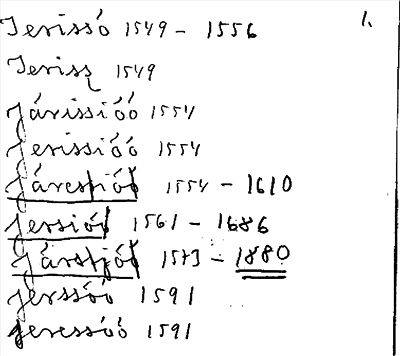 Jerissó 1549 - 1556 1.
Jeriss 1549
Járissióó 1554
Jerissióó 1554
1554 - 1610
Jersióó 1561 - 1686
1573 - 1880
Jerssóó 1591
Jeressóó 1591